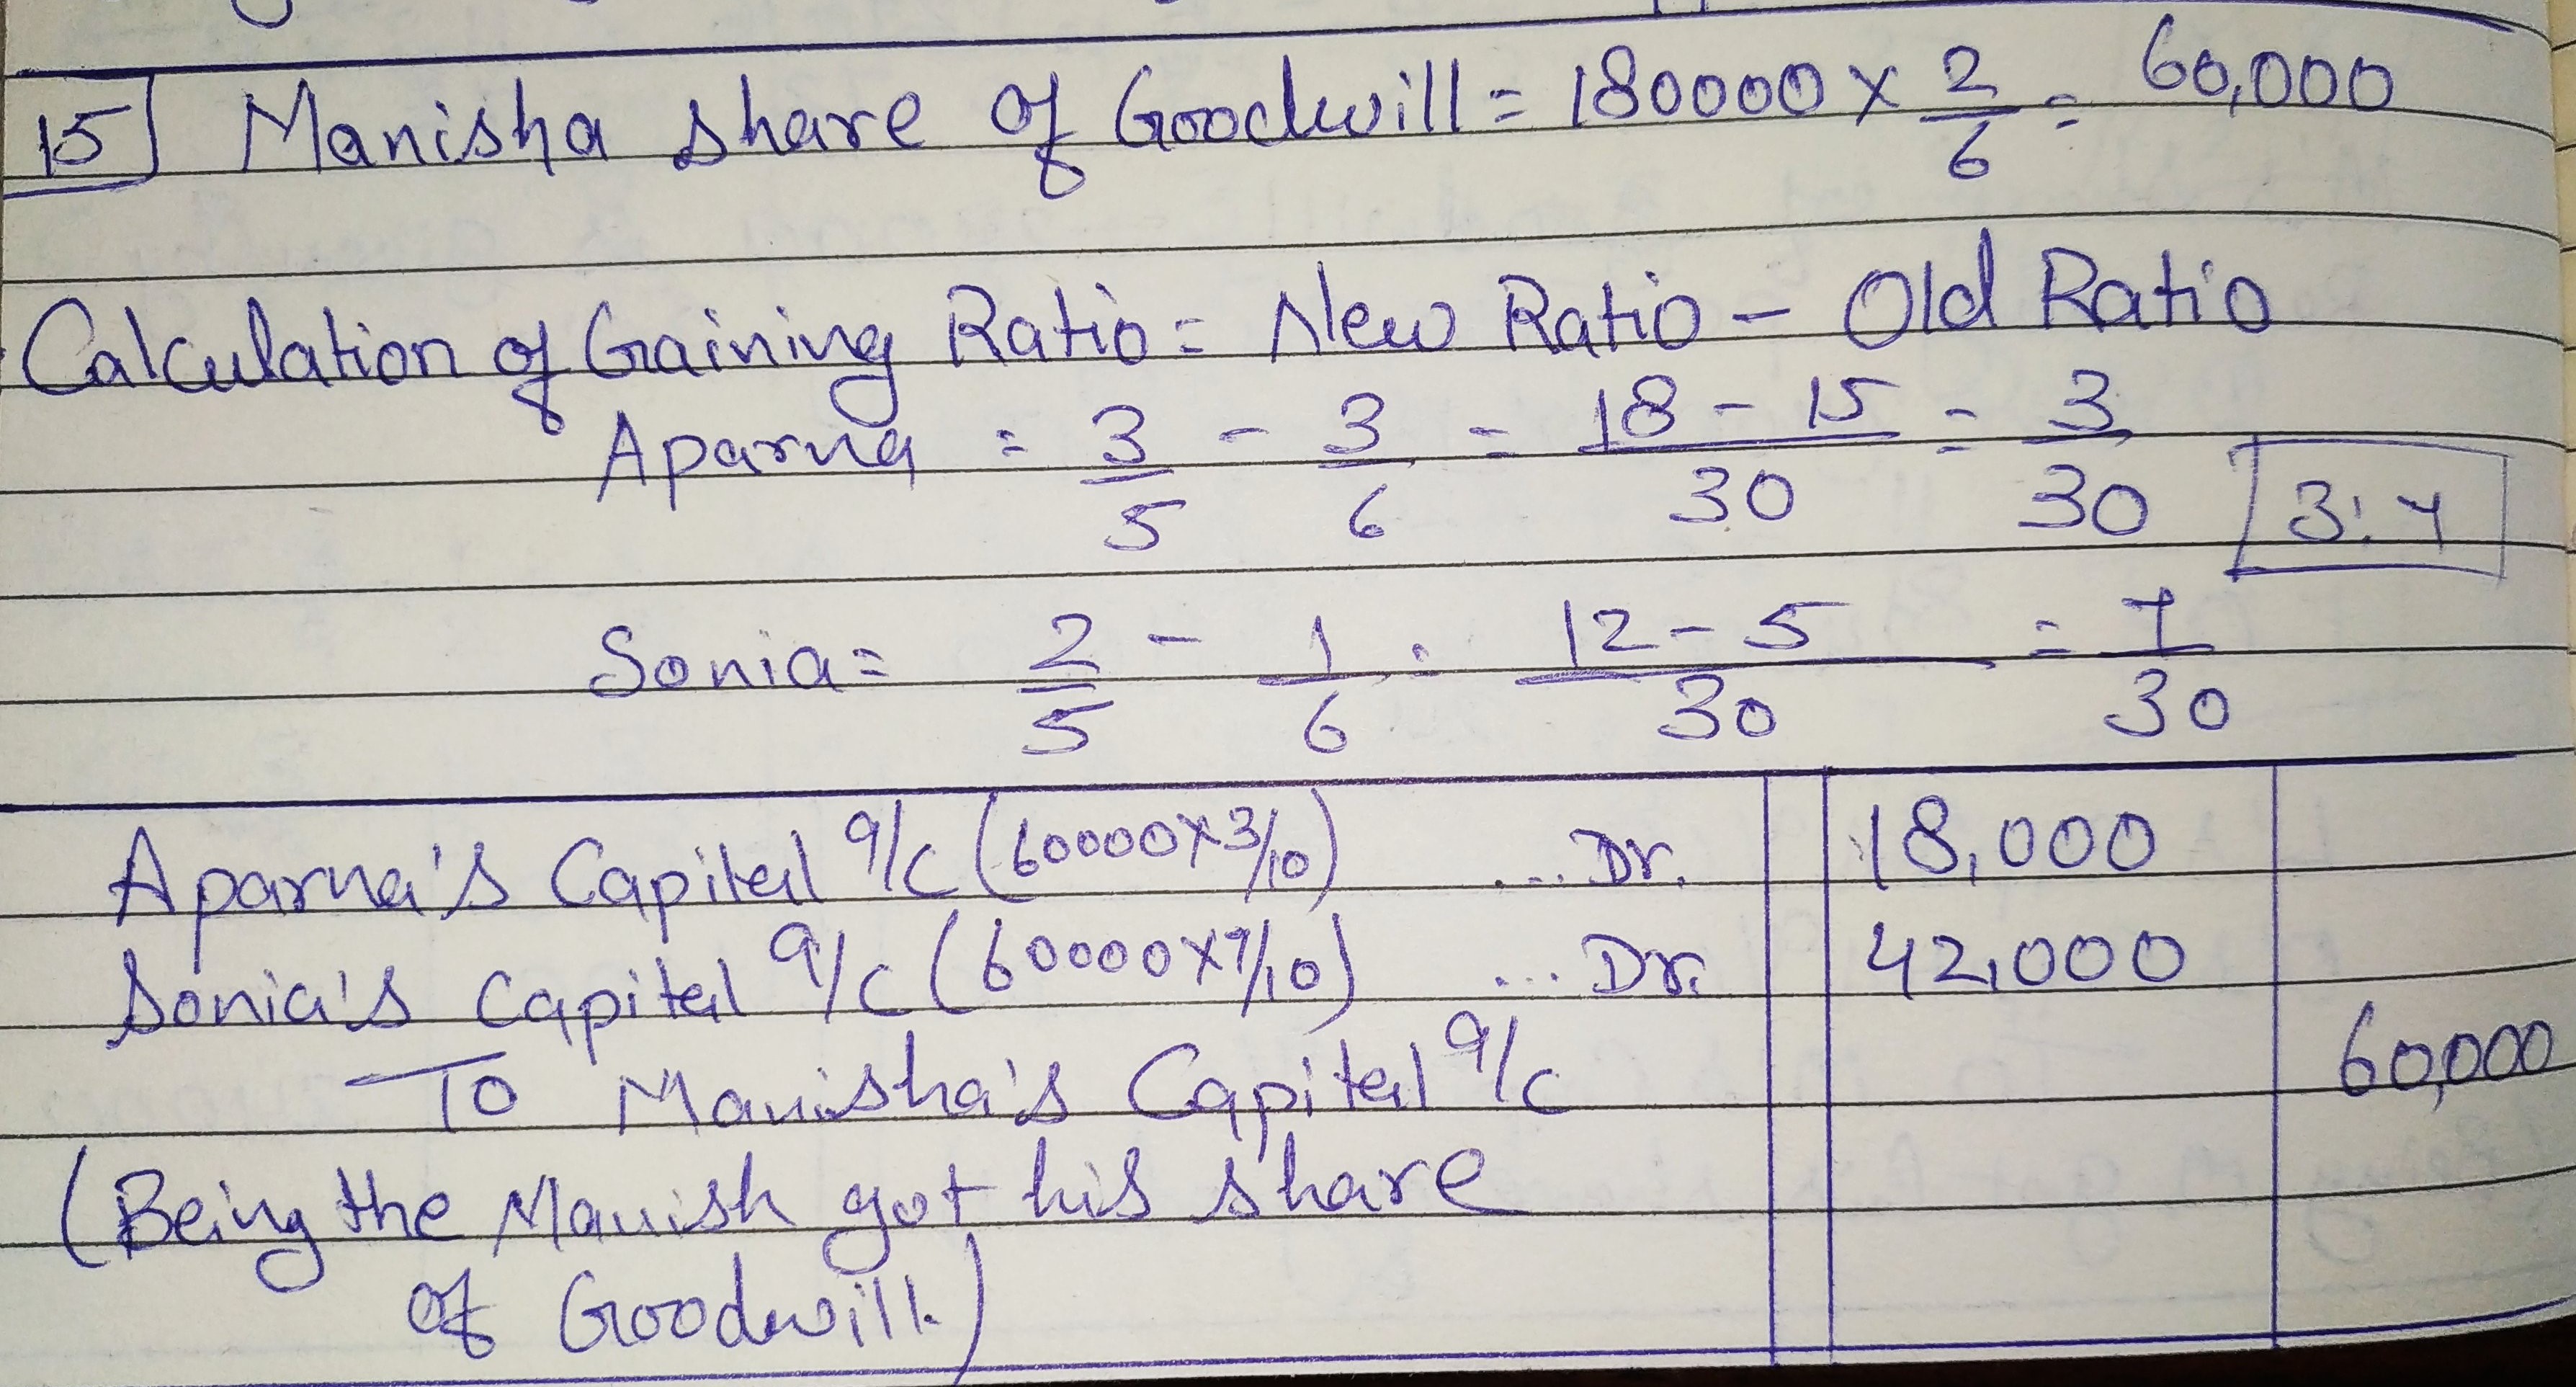 15 Manisha share of Goodwill = 180000 × 2/6 = 60,000
Calculation of Gaining Ratio = New Ratio - Old Ratio
Aparna = 3/5 - 3/6 = 18 - 15/30 = 3/30 3:7
Sonia = 2/5 - 1/6 = 12 - 5/30 = 7/30
Aparna's Capital a/c (60000×3/10) ... Dr. 18,000
Sonia's Capital a/c (60000×7/10) ... Dr. 42,000
To Manisha's Capital a/c 60,000
(Being the Manish got his share
of Goodwill.)